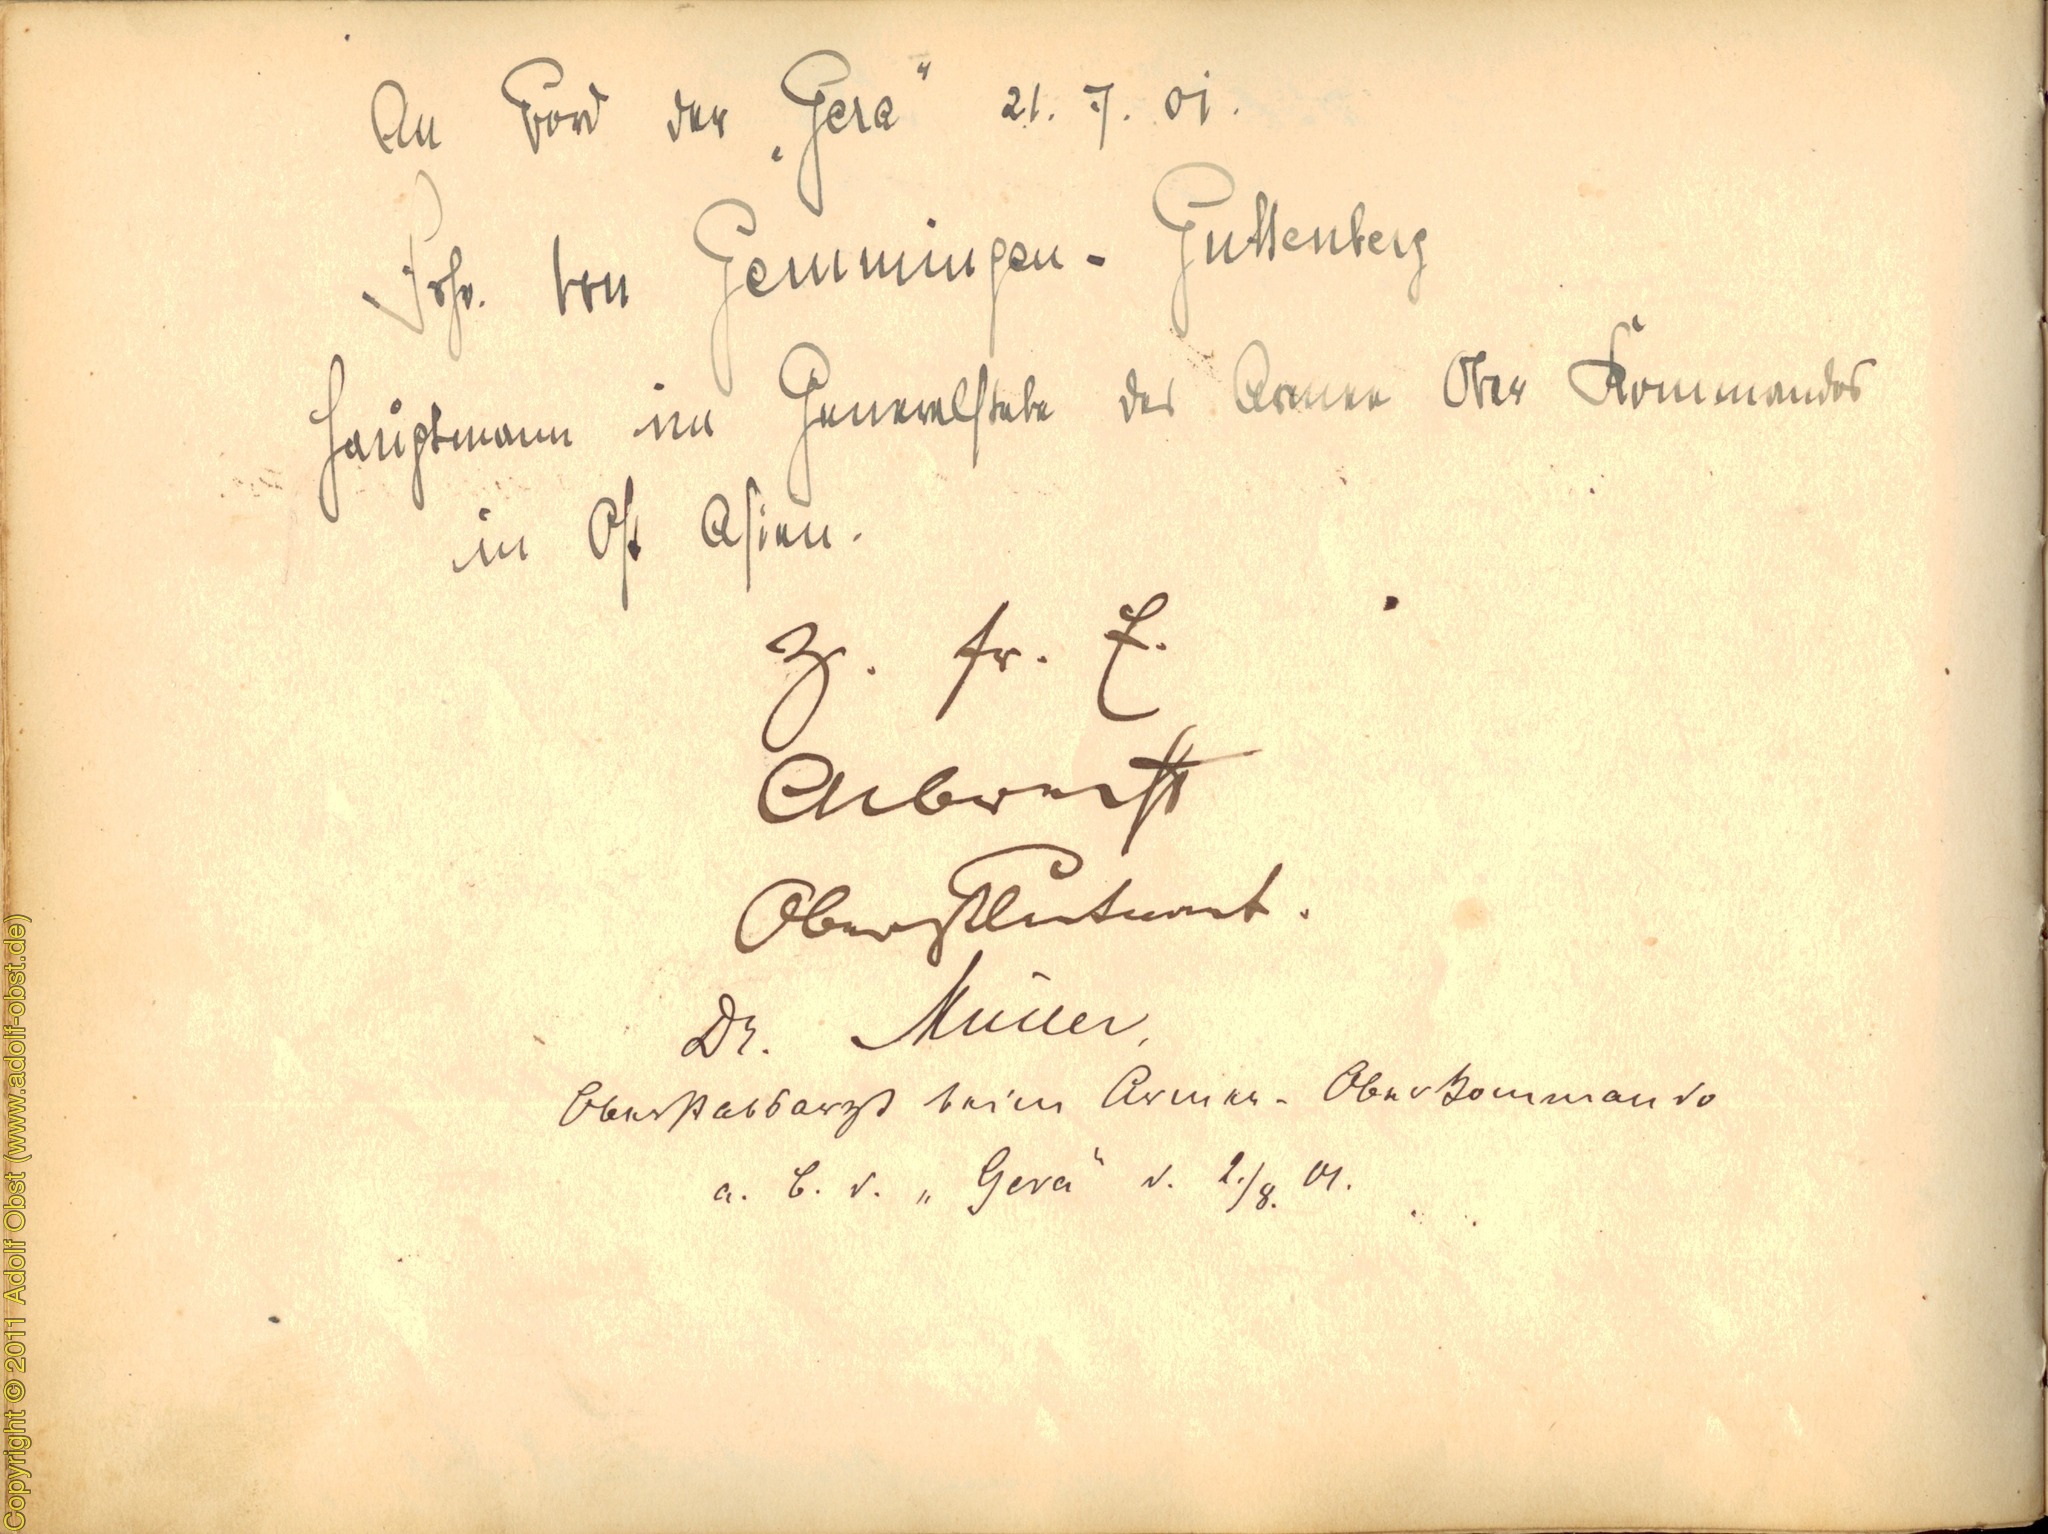 An Bord der „Gera“ 21. 7. 01.
Frhr. von Gemmingen-Guttenberg
Hauptmann im Generalstabe des Armee Ober Kommandos
in Ost Asien.
Z. fr. E.
Oberstleutnant.
Dr. Müller,
Oberstabsarzt beim Armee-Oberkommando
a. B. d. „Gera“ d. 2./8. 01.
Copyright © 2011 Adolf Obst (www.adolf-obst.de)